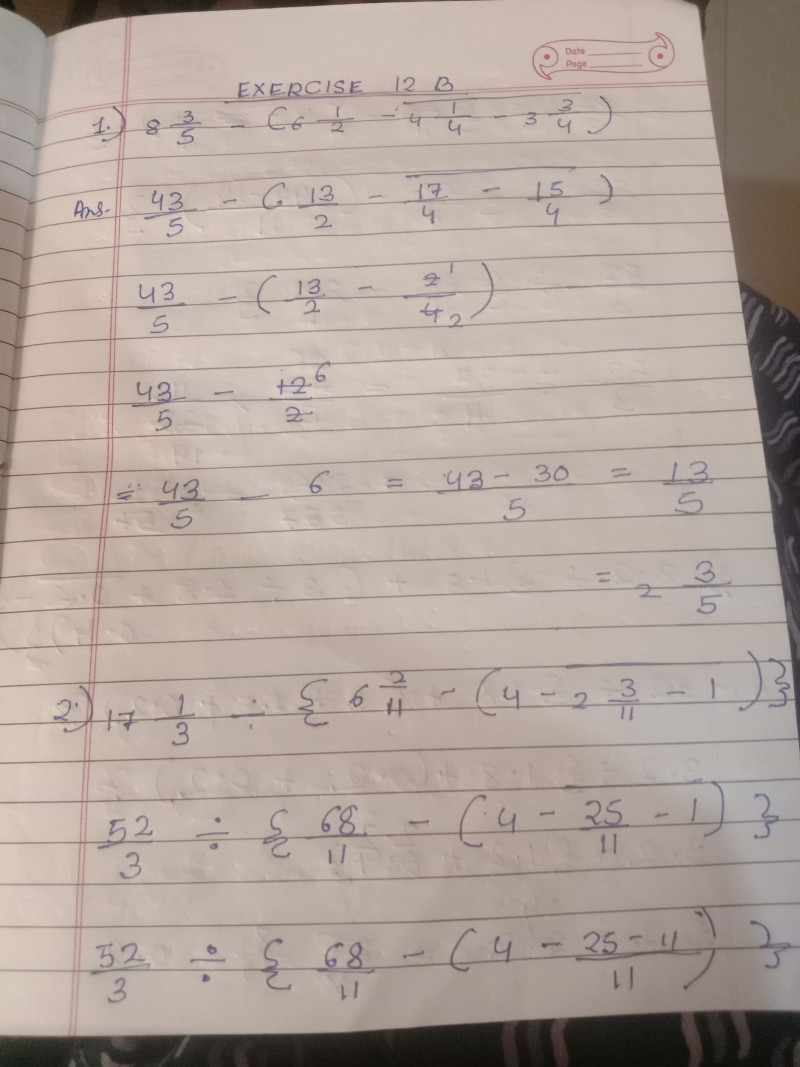 Date
Page
EXERCISE 12 B
1.) 8 3/5 - (6 1/2 - 4 1/4 - 3 3/4)
Ans. 43/5 - (13/2 - 17/4 - 15/4)
43/5 - (13/2 - 2 1/4 2)
43/5 - 12 6/2
= 43/5 - 6 = 43 - 30/5 = 13/5
= 2 3/5
2.) 17 1/3 ÷ { 6 2/11 - (4 - 2 3/11 - 1) }
52/3 ÷ { 68/11 - (4 - 25/11 - 1) }
52/3 ÷ { 68/11 - (4 - 25 - 11/11) }